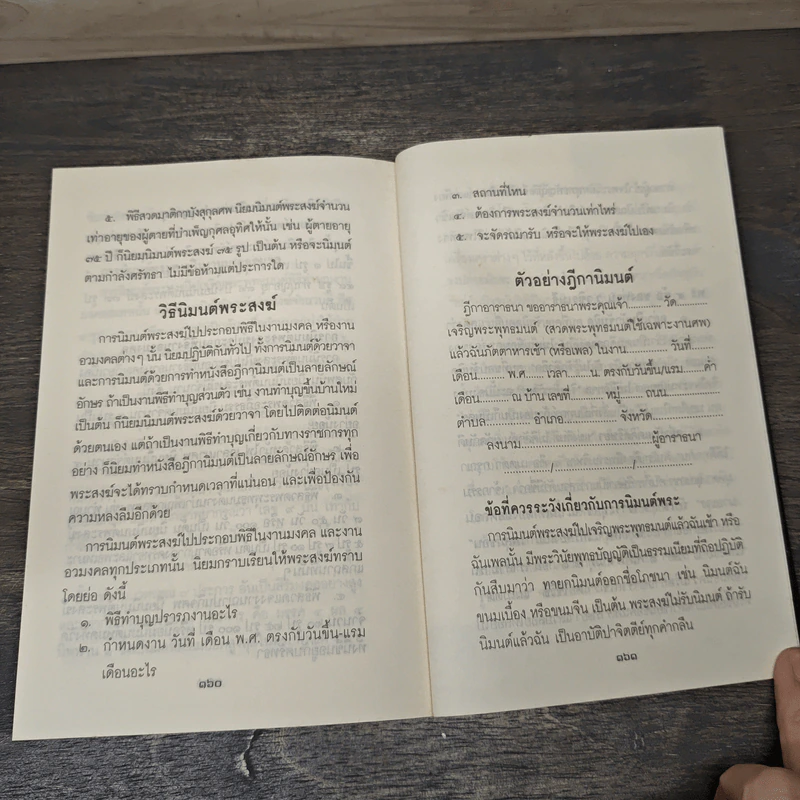 ๕. พิธีสวดมาติกาบังสุกุลศพ นิยมนิมนต์พระสงฆ์จำนวน
เท่าอายุของผู้ตายที่บำเพ็ญกุศลอุทิศให้นั้น เช่น ผู้ตายอายุ
๗๕ ปี ก็นิยมนิมนต์พระสงฆ์ ๗๕ รูป เป็นต้น หรือจะนิมนต์
ตามกำลังศรัทธา ไม่มีข้อห้ามแต่ประการใด
วิธีนิมนต์พระสงฆ์
การนิมนต์พระสงฆ์ไปประกอบพิธีในงานมงคล หรืองาน
อวมงคลต่างๆ นั้น นิยมปฏิบัติกันทั่วไป ทั้งการนิมนต์ด้วยวาจา
และการนิมนต์ด้วยการทำหนังสือฎีกานิมนต์เป็นลายลักษณ์
อักษร ถ้าเป็นงานพิธีทำบุญส่วนตัว เช่น งานทำบุญขึ้นบ้านใหม่
เป็นต้น ก็นิยมนิมนต์พระสงฆ์ด้วยวาจา โดยไปติดต่อนิมนต์
ด้วยตนเอง แต่ถ้าเป็นงานพิธีทำบุญเกี่ยวกับทางราชการทุก
อย่าง ก็นิยมทำหนังสือฎีกานิมนต์เป็นลายลักษณ์อักษร เพื่อ
พระสงฆ์จะได้ทราบกำหนดเวลาที่แน่นอน และเพื่อป้องกัน
ความหลงลืมอีกด้วย
การนิมนต์พระสงฆ์ไปประกอบพิธีในงานมงคล และงาน
อวมงคลทุกประเภทนั้น นิยมกราบเรียนให้พระสงฆ์ทราบ
โดยย่อ ดังนี้
๑. พิธีทำบุญปรารภงานอะไร
๒. กำหนดงาน วันที่ เดือน พ.ศ. ตรงกับวันขึ้น-แรม
เดือนอะไร
๑๖๐
๓. สถานที่ไหน
๔. ต้องการพระสงฆ์จำนวนเท่าไหร่
๕. จะจัดรถมารับ หรือจะให้พระสงฆ์ไปเอง
ตัวอย่างฎีกานิมนต์
ฎีกาอาราธนา ขออาราธนาพระคุณเจ้า............วัด..........
เจริญพระพุทธมนต์ (สวดพระพุทธมนต์ใช้เฉพาะงานศพ)
แล้วฉันภัตตาหารเช้า (หรือเพล) ในงาน............ วันที่........
เดือน.......... พ.ศ....... เวลา.......น. ตรงกับวันขึ้น/แรม.......ค่ำ
เดือน........... ณ บ้าน เลขที่............ หมู่....... ถนน..............
ตำบล................ อำเภอ................ จังหวัด...................
ลงนาม.................................ผู้อาราธนา
................../..................../..................
ข้อที่ควรระวังเกี่ยวกับการนิมนต์พระ
การนิมนต์พระสงฆ์ไปเจริญพระพุทธมนต์แล้วฉันเช้า หรือ
ฉันเพลนั้น มีพระวินัยพุทธบัญญัติเป็นธรรมเนียมที่ถือปฏิบัติ
กันสืบมาว่า ทายกนิมนต์ออกชื่อโภชนา เช่น นิมนต์ฉัน
ขนมเบื้อง หรือขนมจีน เป็นต้น พระสงฆ์ไม่รับนิมนต์ ถ้ารับ
นิมนต์แล้วฉัน เป็นอาบัติปาจิตตีย์ทุกคำกลืน
๑๖๑